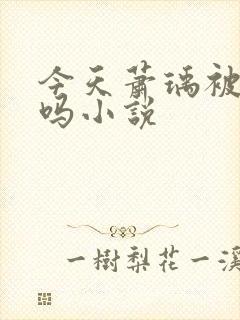 今天萧瑀被
吗小説
一樹梨花一溪